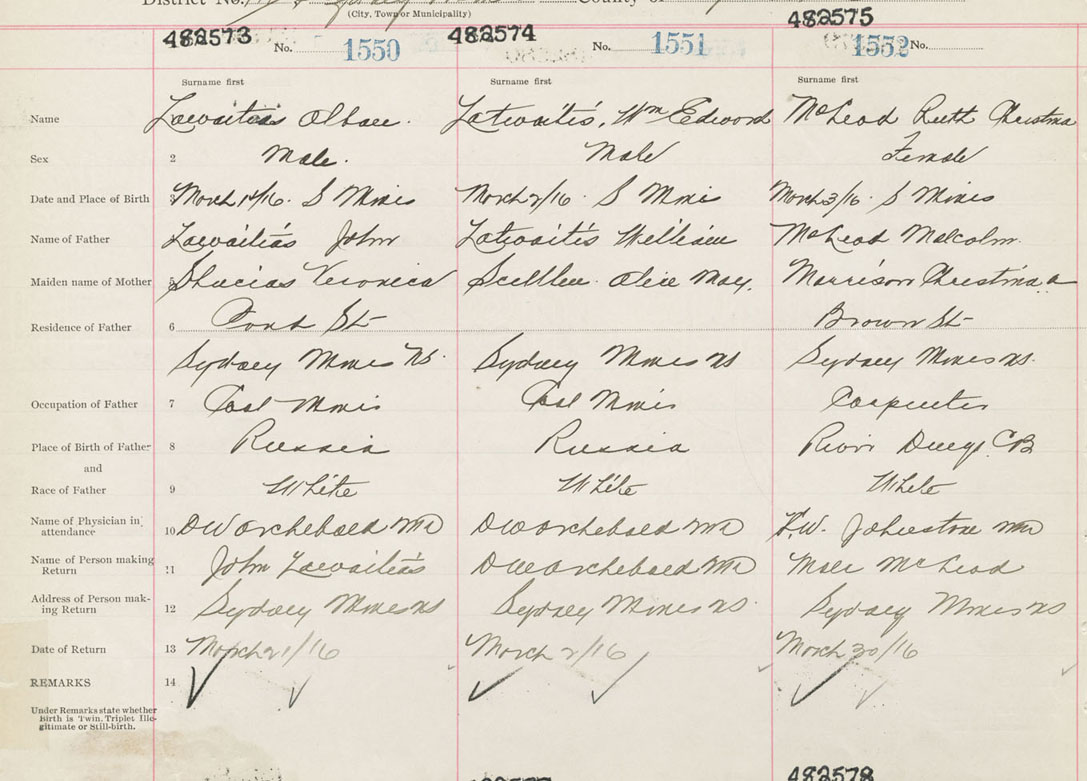 District No.
(City, Town or Municipality)
County of
482573 No. 1550 482574 No. 1551 482575 1552 No.
Surname first Surname first Surname first
Name Alban. Wm Edword McLeod Ruth Christina
Sex 2 Male. Male Female
Date and Place of Birth 3 March 14/16. S Mines March 2/16. S Mines March 3/16. S Mines
Name of Father John William McLeod Malcolm.
Maiden name of Mother 5 Veronica Alice May. Morrison Christina a
Residence of Father 6 Pond St Brown St
Sydney Mines NS. Sydney Mines NS Sydney Mines NS.
Occupation of Father 7 Coal Miner Coal Miner Carpenter
Place of Birth of Father 8 Russia Russia River CB
and
Race of Father 9 White White White
Name of Physician in attendance 10 DW Archebald MD DW Archebald MD Johnstone MD
Name of Person making Return 11 John DW Archebald MD McLeod
Address of Person making Return 12 Sydney Mines NS Sydney Mines NS. Sydney Mines NS
Date of Return 13 March 21/16 March 2/16 March 30/16
REMARKS 14
Under Remarks state whether
Birth is Twin, Triplet Ille-
gitimate or Still-birth.
482578